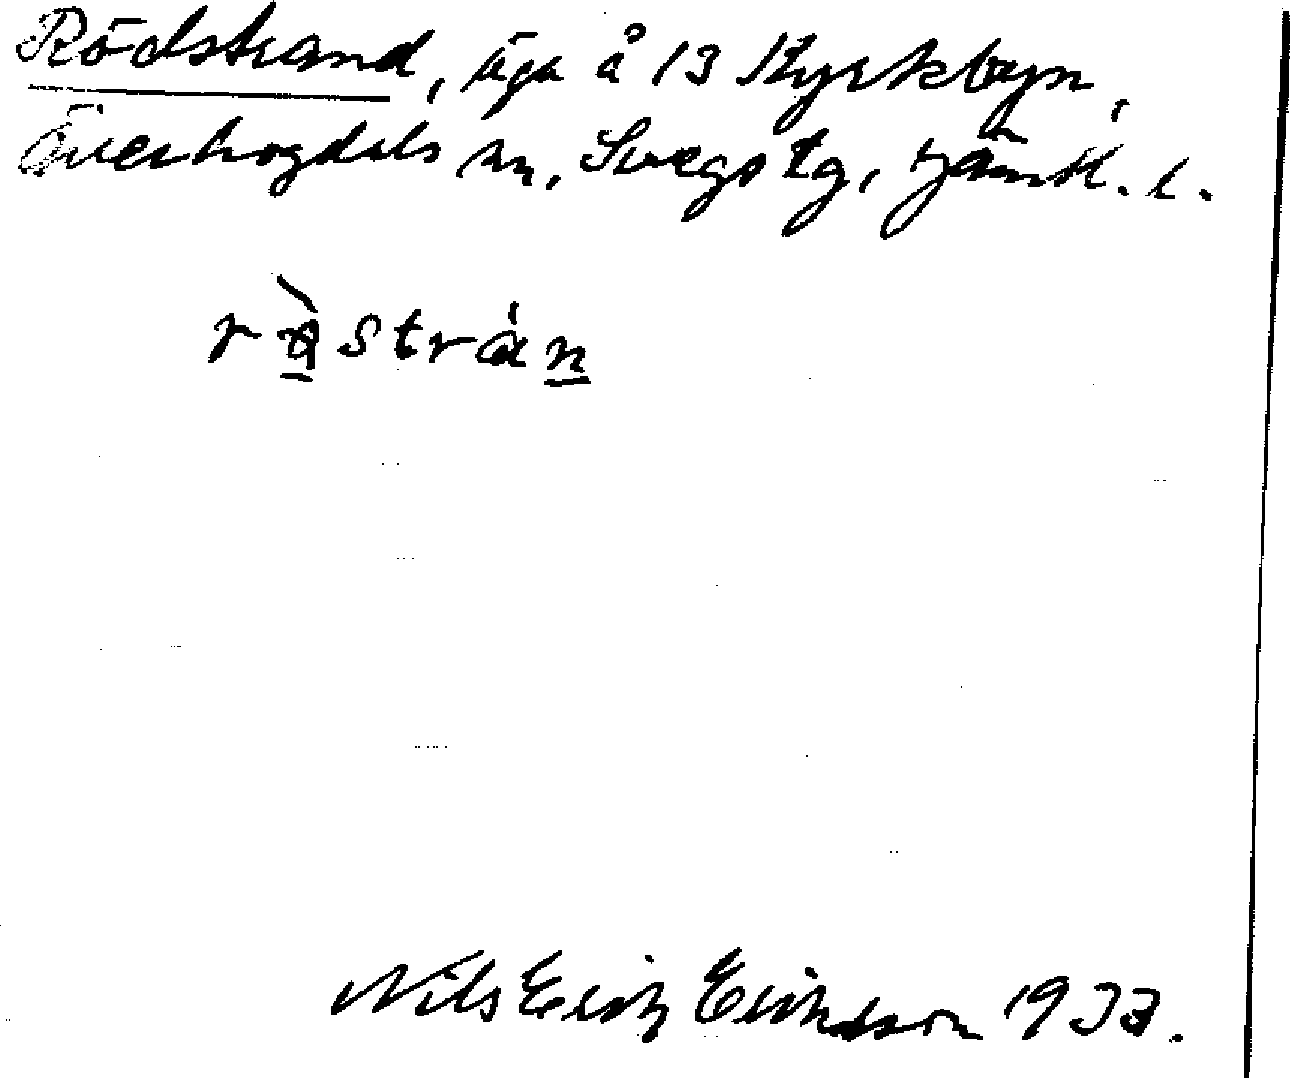 Rödstrand, äga å 13 Kyrkbyn,
Överhogdals sn, Svegs tg, Jämtl. l.
rö̀strán
Nils Erik Eriksson 1933.